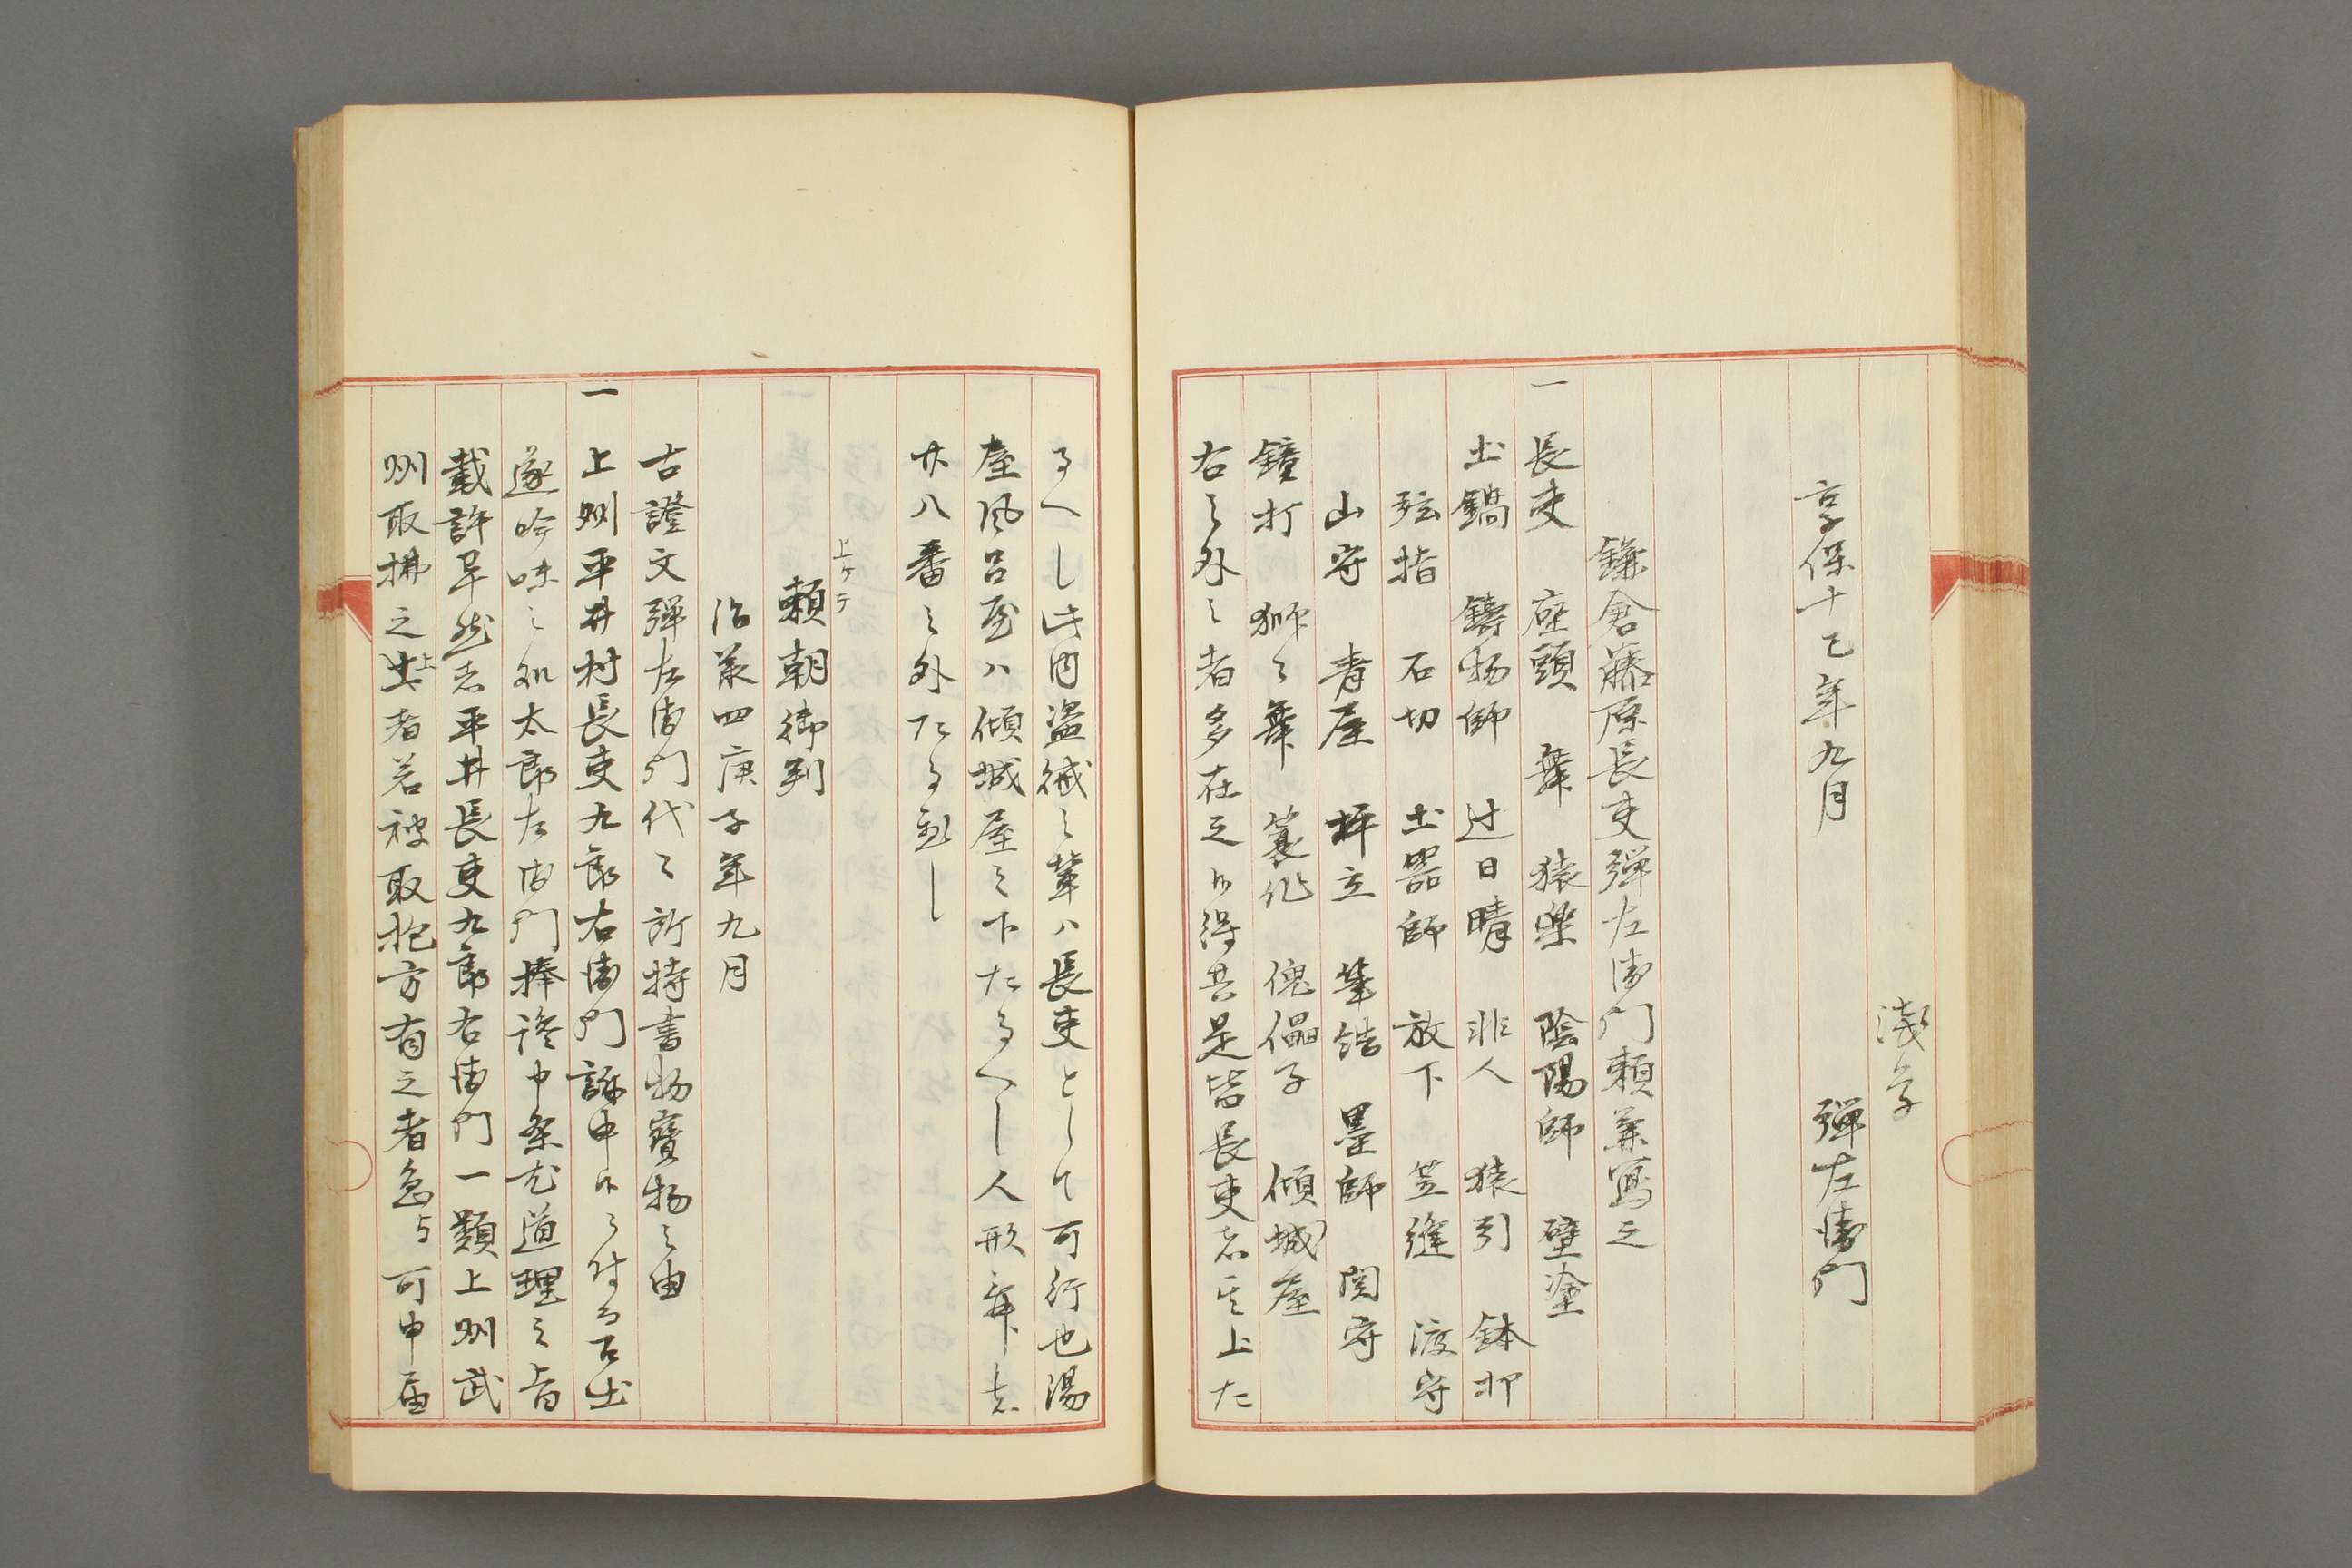 浅草
弾左衛門
享保十乙年九月
鎌倉藤原長吏弾左衛門頼兼寫之
一 長吏 座頭 舞 猿樂 陰陽師 壁塗
土鍋 鑄物師 辻目暗 非人 猿引 鉢叩
弦指 石切 土器師 放下 笠縫 渡守
山守 青屋 坪立 筆結 墨師 関守
鐘打 獅子舞 簑作 傀儡子 傾城屋
右之外之者多在之候得共是皆長吏者其上た
るへし此内盗賊之輩ハ長吏として可行也湯
屋風呂屋ハ傾城屋之下たるへし人形舞者
廿八番之外たる到し
上ケテ
頼朝御判
治承四庚子年九月
古證文弾左衛門代々所持書物寶物之由
一 上州平井村長吏九郎右衛門訴申候ニ付而召出
遂吟味之処太郎左衛門捧證申条尤道理之旨
載許早然者平井長吏九郎右衛門一類上州武
州取拂之上者若被取抱方有之者急与可申届